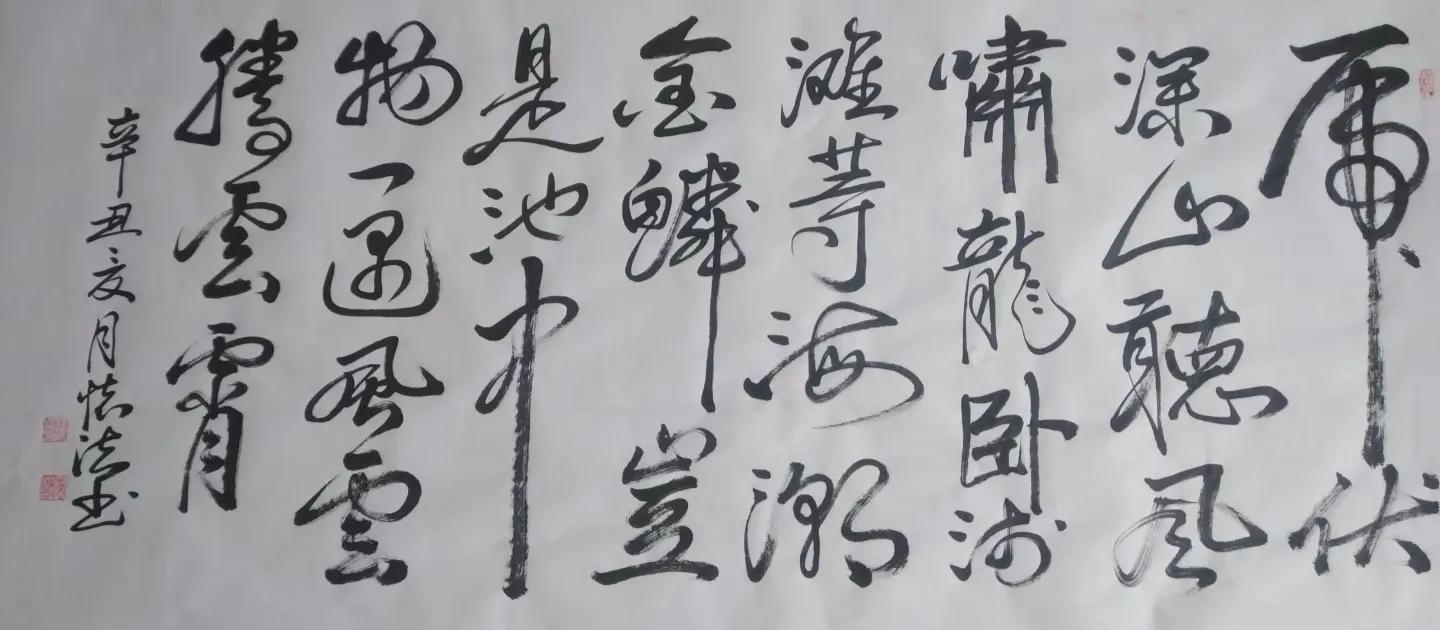 虎伏
深山聽風
嘯龍卧浅
灘等海潮
金鱗豈
是池中
物一遇風雲
騰雲霄
辛丑亥月慎法书